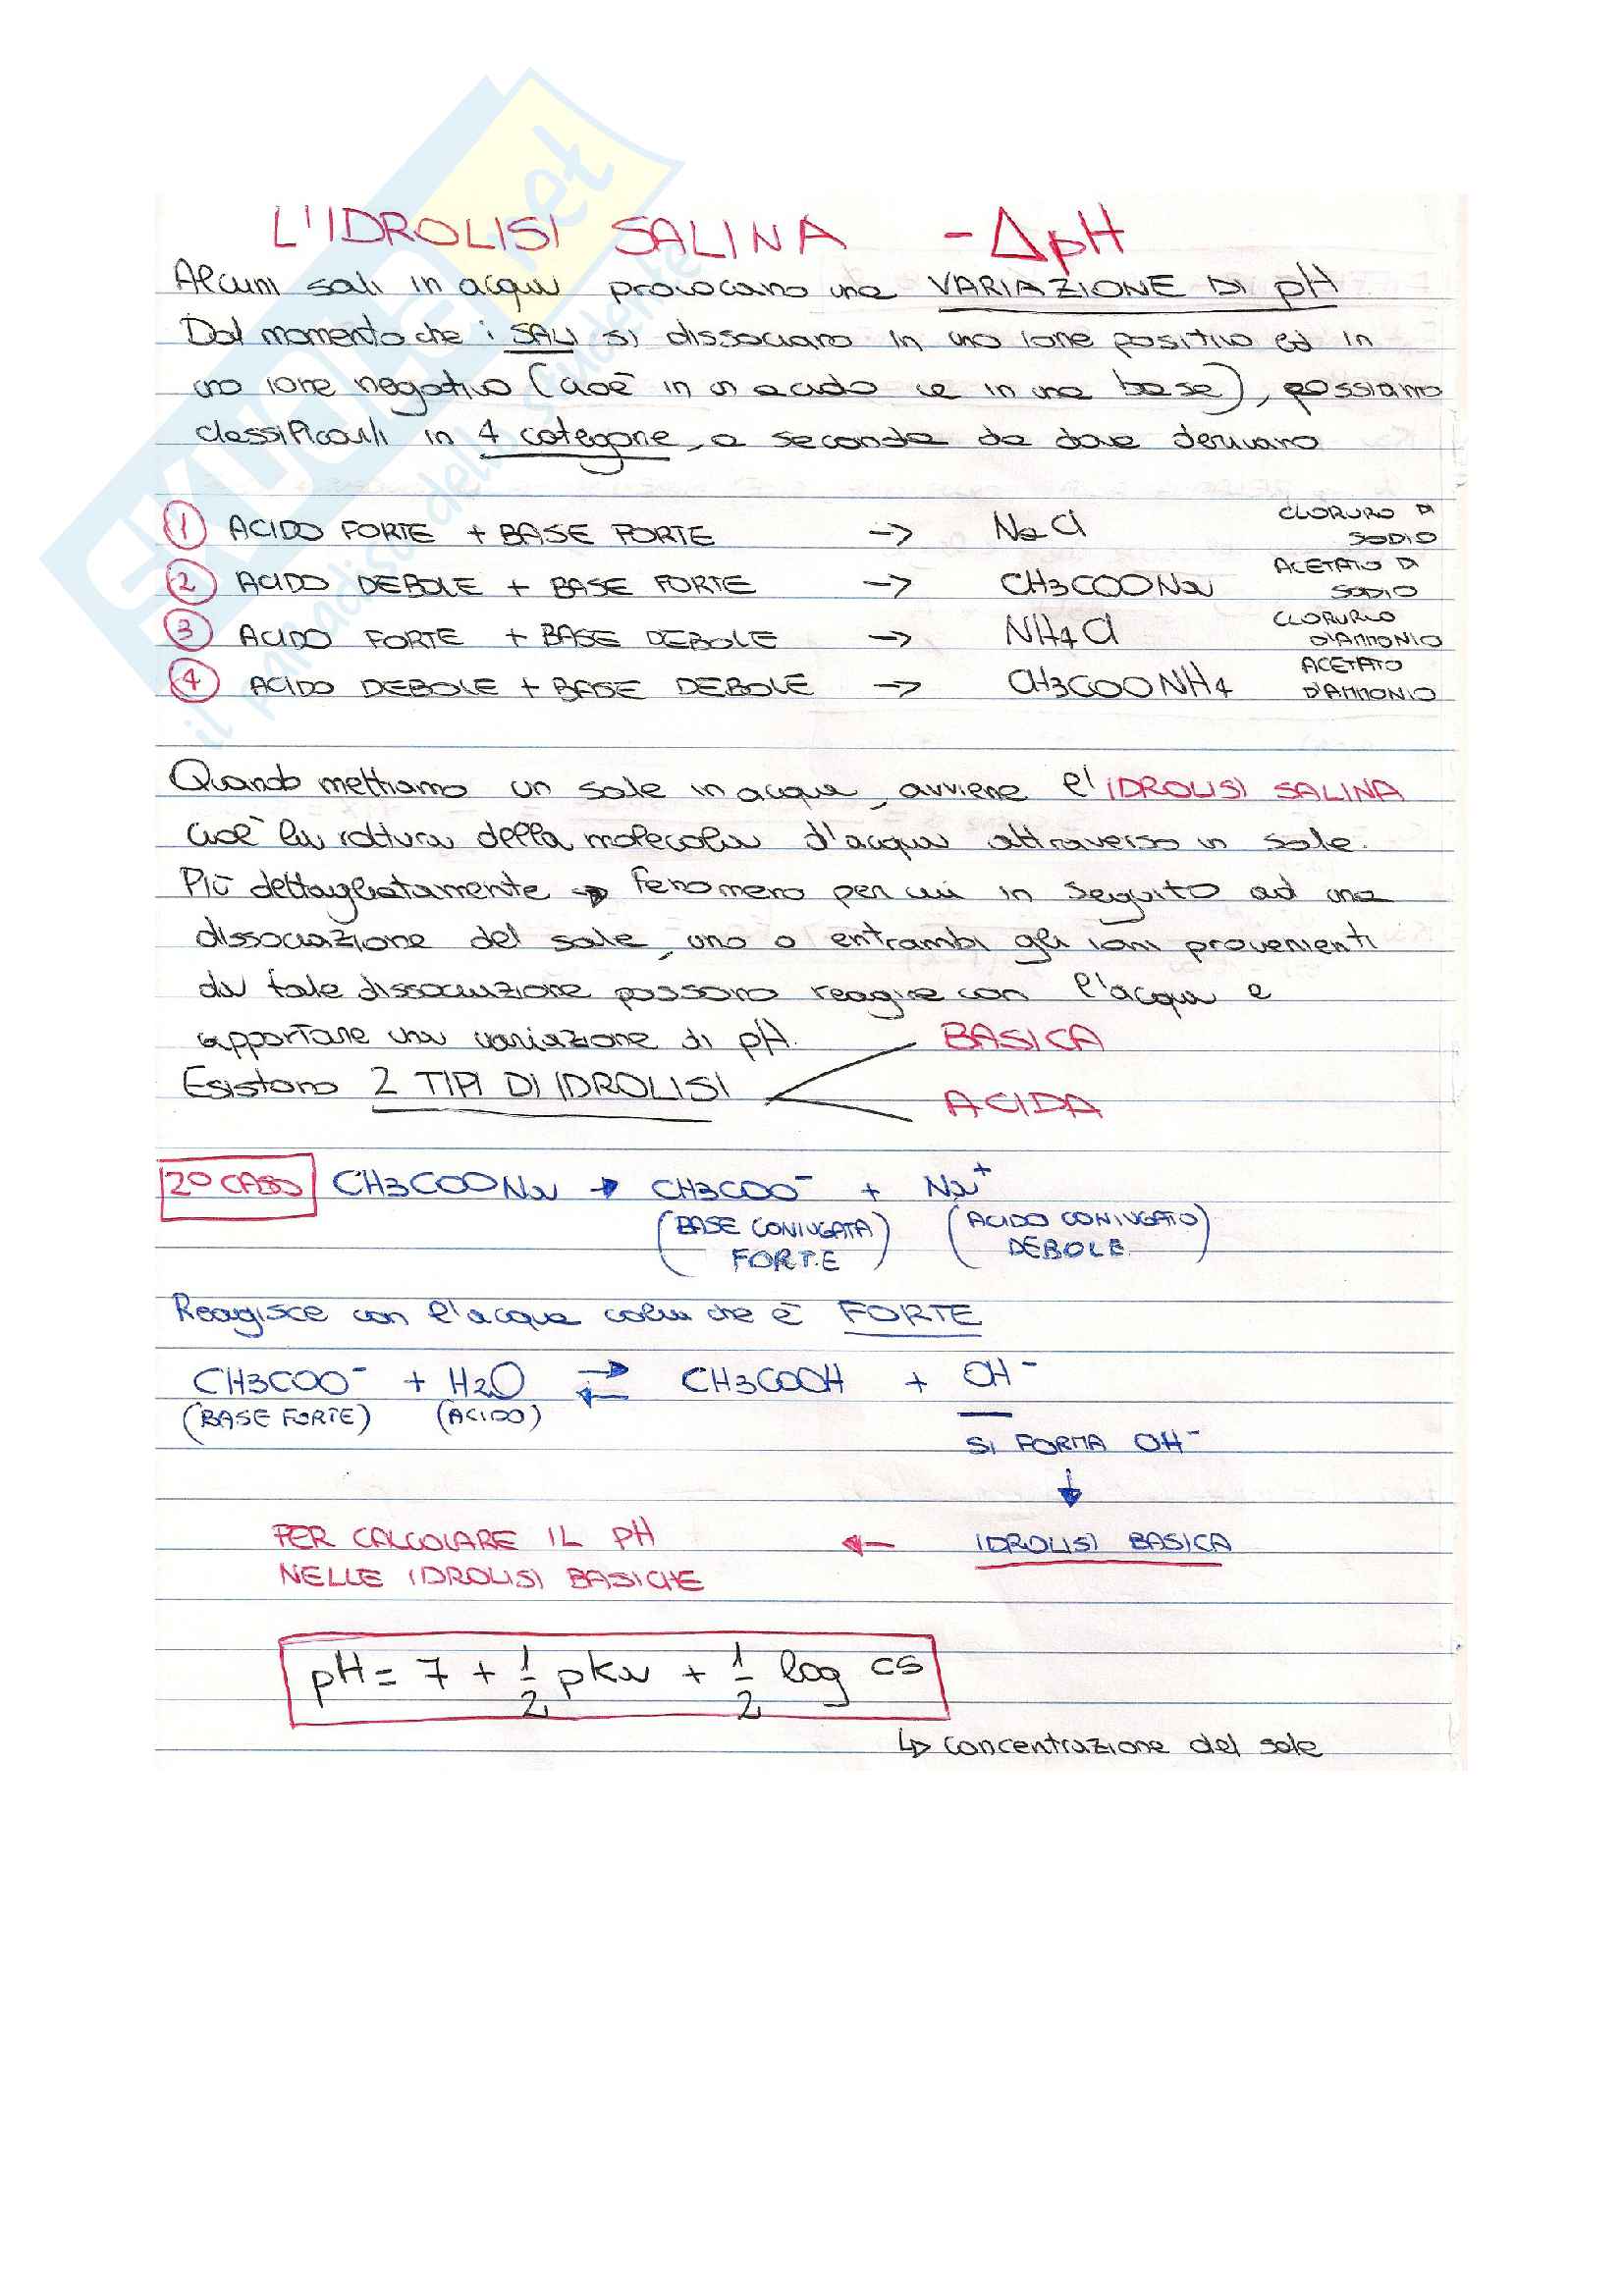 SKUOLA.net
il paradiso dello studente
L'IDROLISI SALINA - ΔpH
Alcuni sali in acqua provocano una VARIAZIONE DI pH
Dal momento che i SALI si dissociano in uno ione positivo ed in
uno ione negativo (cioè in un acido e in una base), possiamo
classificarli in 4 categorie, a seconda da dove derivano
1 ACIDO FORTE + BASE FORTE → NaCl CLORURO DI SODIO
2 ACIDO DEBOLE + BASE FORTE → CH3COONa ACETATO DI SODIO
3 ACIDO FORTE + BASE DEBOLE → NH4Cl CLORURO D'AMMONIO
4 ACIDO DEBOLE + BASE DEBOLE → CH3COONH4 ACETATO D'AMMONIO
Quando mettiamo un sale in acqua, avviene l'IDROLISI SALINA
cioè la rottura della molecola d'acqua attraverso un sale.
Più dettagliatamente → fenomeno per cui in seguito ad una
dissociazione del sale, uno o entrambi gli ioni provenienti
da tale dissociazione possono reagire con l'acqua e
apportare una variazione di pH. BASICA
Esistono 2 TIPI DI IDROLISI
ACIDA
2° CASO CH3COONa → CH3COO⁻ + Na⁺
(BASE CONIUGATA FORTE) (ACIDO CONIUGATO DEBOLE)
Reagisce con l'acqua colui che è FORTE
CH3COO⁻ + H2O ⇄ CH3COOH + OH⁻
(BASE FORTE) (ACIDO)
SI FORMA OH⁻
↓
PER CALCOLARE IL PH ← IDROLISI BASICA
NELLE IDROLISI BASICHE
pH = 7 + 1/2 pka + 1/2 log cs
↳ concentrazione del sale